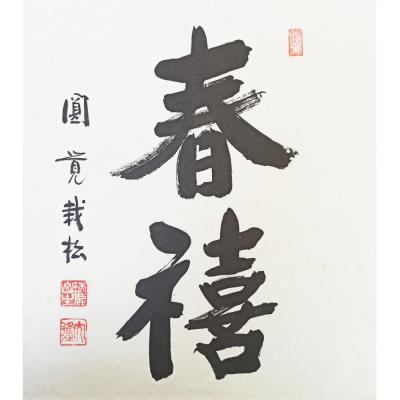 春禧
圓覚栽松